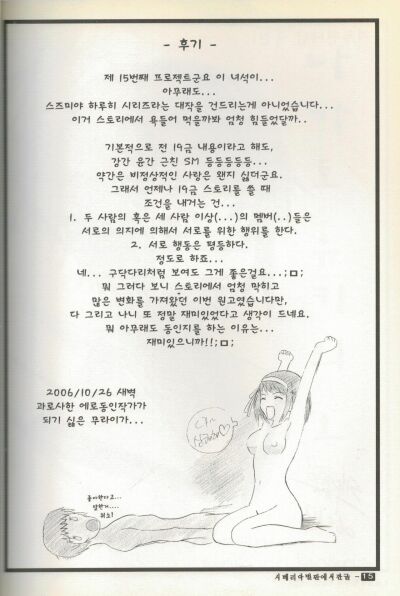 - 후기 -
제 15번째 프로젝트군요 이 녀석이...
아무래도...
스즈미야 하루히 시리즈라는 대작을 건드리는게 아니었습니다...
이거 스토리에서 욕들어 먹을까봐 엄청 힘들었달까..
기본적으로 전 19금 내용이라고 해도,
강간 윤간 근친 SM 등등등등등...
약간은 비정상적인 사랑은 왠지 싫더군요.
그래서 언제나 19금 스토리를 쓸 때
조건을 내거는 건...
1. 두 사람의 혹은 세 사람 이상(...)의 멤버(..)들은
서로의 의지에 의해서 서로를 위한 행위를 한다.
2. 서로 행동은 평등하다.
정도로 하죠...
네... 구닥다리처럼 보여도 그게 좋은걸요...;ㅁ;
뭐 그러다 보니 스토리에서 엄청 막히고
많은 변화를 가져왔던 이번 원고였습니다만,
다 그리고 나니 또 정말 재미있었다고 생각이 드네요.
뭐 아무래도 동인지를 하는 이유는...
재미있으니까!!;ㅁ;
2006/10/26 새벽
과로사한 에로동인작가가
되기 싫은 무라이가...
좋아한다고...
말한거...
취소!
15